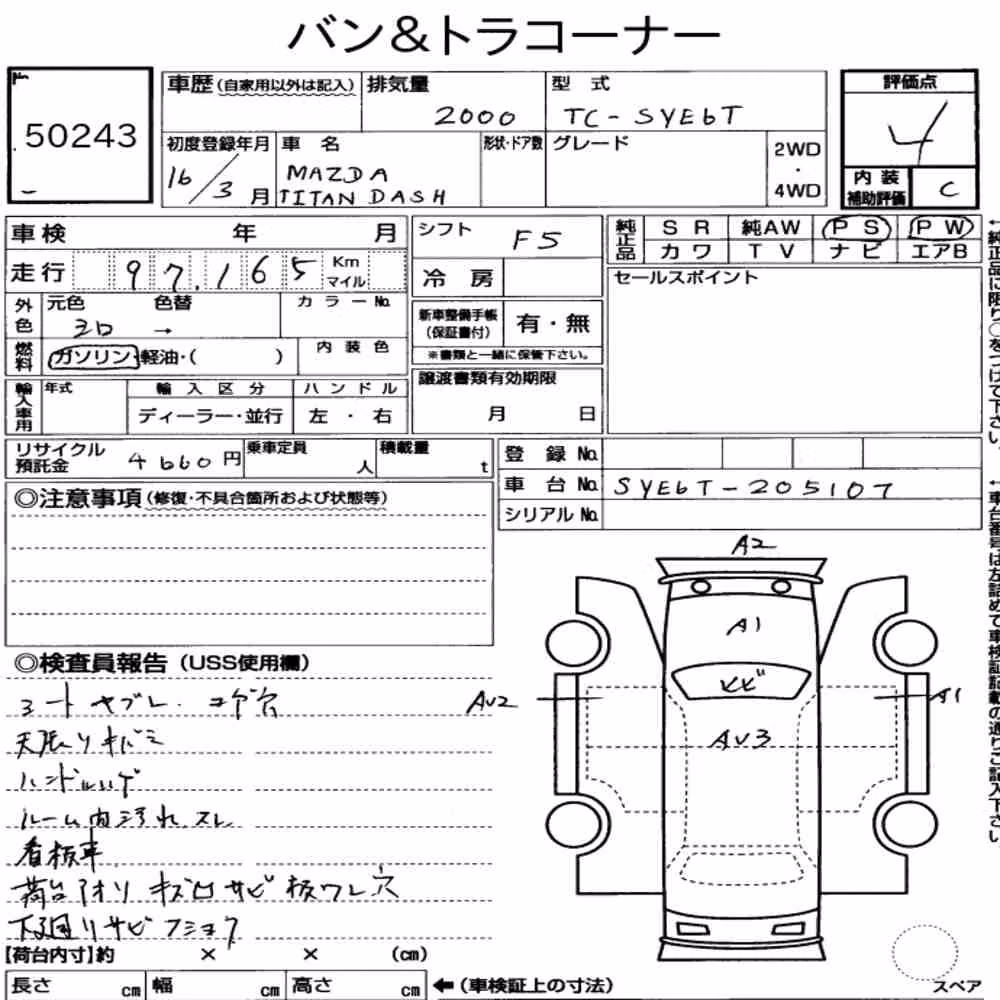 バン&トラコーナー
50243
車歴(自家用以外は記入) 排気量 2000 型式 TC-SYE6T
初度登録年月 16/3月 車名 MAZDA TITAN DASH 形状・ドア数 グレード 2WD・4WD
評価点 4
内装補助評価 C
車検 年 月
走行 97,165 Km マイル
外色 元色 シロ 色替 → カラーNo.
燃料 ガソリン・軽油・( ) 内装色
輸入車用 年式 輸入区分 ディーラー・並行 ハンドル 左・右
シフト F5
冷房
新車整備手帳(保証書付) 有・無
※書類と一緒に保管下さい。
譲渡書類有効期限 月 日
純正品 SR 純AW PS PW
カワ TV ナビ エアB
セールスポイント
←純正品に限り○をつけて下さい。
リサイクル預託金 4660円 乗車定員 人 積載量 t
登録No.
車台No. SYE6T-205107
シリアルNo.
←車台番号は左詰めで車検証記載の通りご記入下さい。
◎注意事項(修復・不具合箇所および状態等)
◎検査員報告(USS使用欄)
シートヤブレ.コゲ穴
天張りキバミ
ハンドルハゲ
ルーム内汚れ.スレ
看板車
荷台アオリ キズ凹サビ板ワレ穴
下廻りサビフショク
A2
A1
ヒビ
AU2
A1
AU3
【荷台内寸】約 × × (cm)
長さ cm 幅 cm 高さ cm ←(車検証上の寸法)
スペア